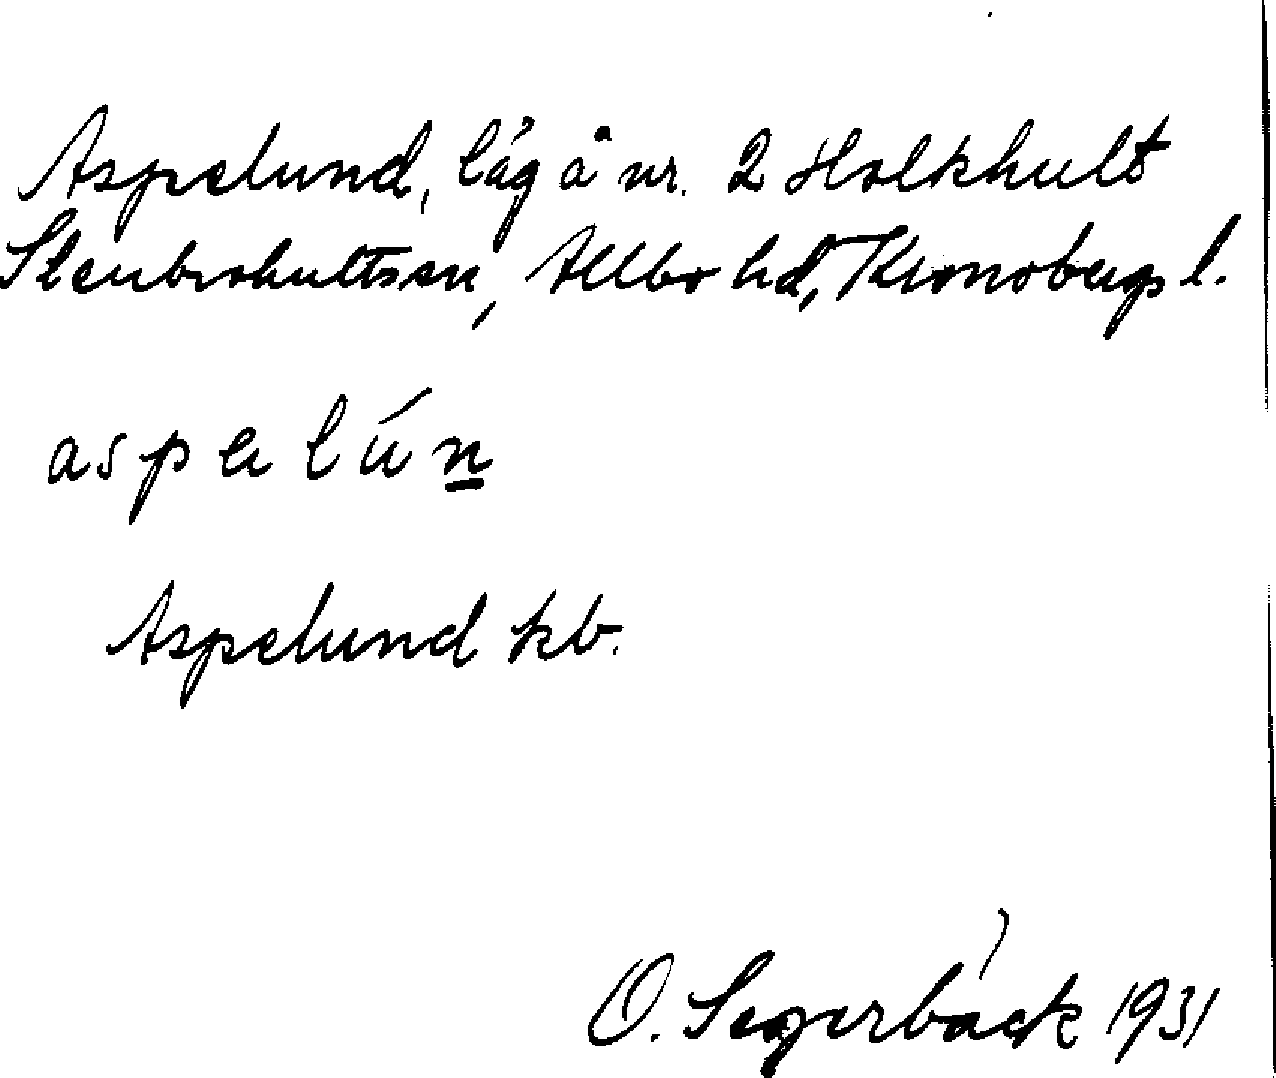 Aspelund, låg å nr. 2 Holkhult
Stenbrohultssn, Allbo hd, Kronobergs l.
aspəlún
Aspelund kb.
O. Segerbäck 1931